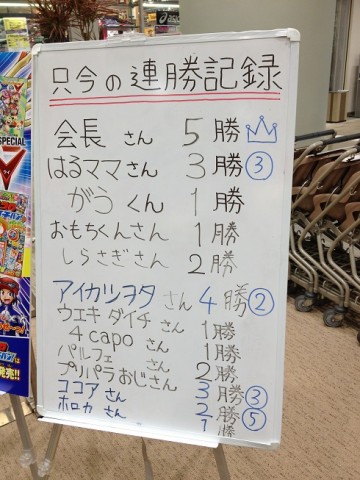 asics
只今の連勝記録
会長 さん 5勝
はるママさん 3勝 ③
がう くん 1勝
おもちくんさん 1勝
しらさぎさん 2勝
アイカツヲタ さん 4勝 ②
ウエキ ダイチ さん 1勝
4 capo さん 1勝
パルフェ さん 2勝
プリパラおじさん 3勝 ③
ココア さん 2勝 ⑤
ホロカ さん 1勝
SPECIAL